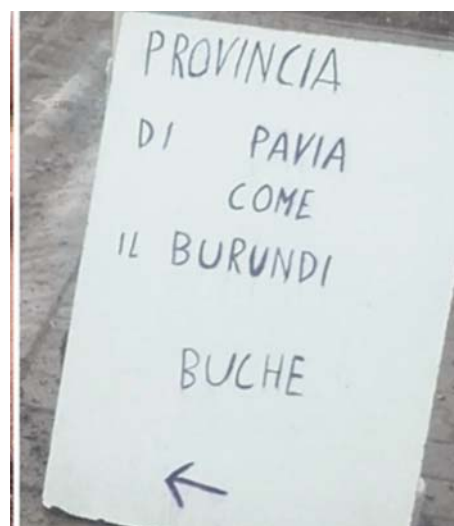 PROVINCIA
DI PAVIA
COME
IL BURUNDI
BUCHE
←